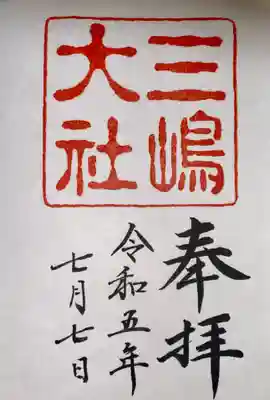 三嶋
大社
奉拝
令和五年
七月七日